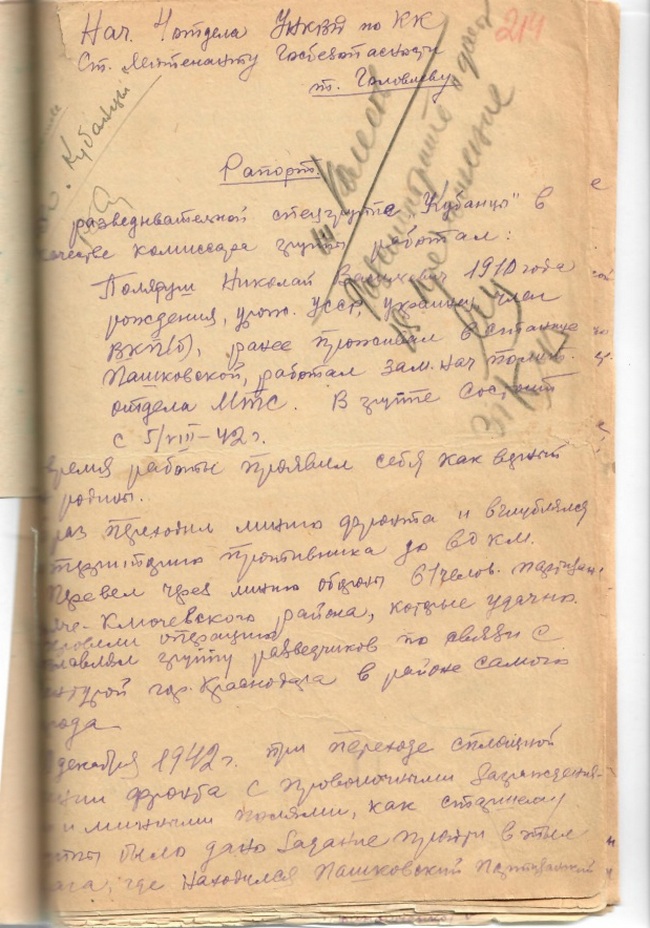 214
Нач. 4 отдела УНКВД по КК
Ст. Лейтенанту Госбезопасности
т. Головлеву
Кубанцы
Рапорт.
разведывательной спецгруппе "Кубанцы" в
качестве комиссара группы работал:
Полядуш Николай 1910 года
рождения, урож. УССР, украинец, член
ВКП(б), ранее проживал в станице
Пашковской, работал зам. нач. полит.
отдела МТС. В группе состоит
с 5/VIII-42 г.
время работы проявил себя как верный
родины.
раз переходил линию фронта и вглублялся
территорию противника до 80 км.
Перевел через линию обороны 61 челов. партизан
че-Ключевского района, которые удачно
провели операцию
группу разведчиков по связи с
гор. Краснодара в районе самого
города
декабря 1942 г. при переходе сплошной
линии фронта с проволочными заграждения-
и минными полями, как старшему
было дано задание пройти в тыл
врага, где находился Пашковский партизанский